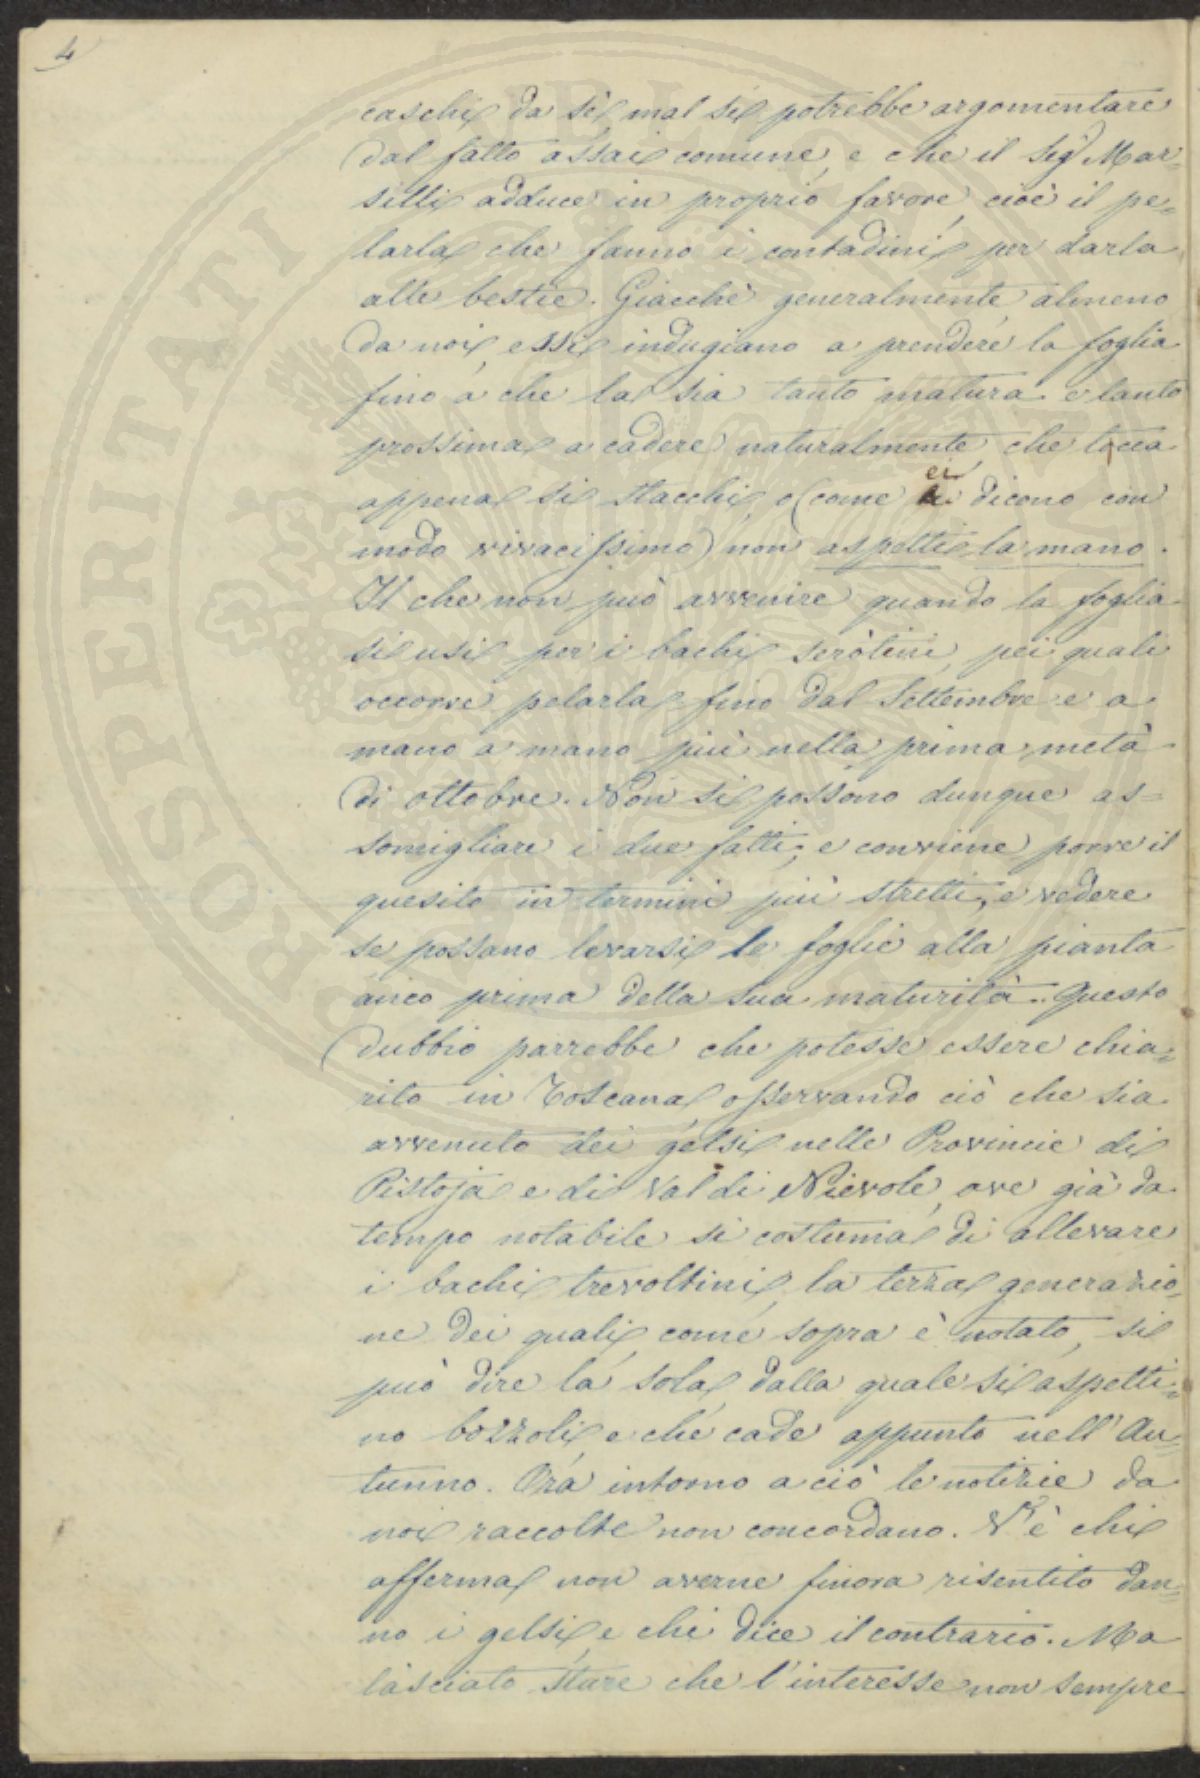 4
caschi da sè, mal si potrebbe argomentare
dal fatto assai comune, e che il Sigr Mar=
silli adduce in proprio favore, cioè il pe=
larla che fanno i contadini per darla
alle bestie. Giacchè generalmente, almeno
da noi, essi indugiano a prendere la foglia
fino a che la sia tanto matura e tanto
prossima a cadere naturalmente, che tocca
appena si stacchi, o (come ei dicono con
modo vivacissimo) non aspetti la mano.
Il che non può avvenire quando la foglia
si usi per i bachi seròtini, pei quali
occorre pelarla fino dal Settembre e a
mano a mano più nella prima metà
di ottobre. Non si possono dunque as=
somigliare i due fatti; e conviene porre il
quesito in termini più stretti, e vedere
se possano levarsi le foglie alla pianta
anco prima della sua maturità. Questo
dubbio parrebbe che potesse essere chia=
rito in Toscana, osservando ciò che sia
avvenuto dei gelsi nelle Provincie di
Pistoja e di Val di Nievole, ove già da
tempo notabile si costuma di allevare
i bachi trevoltini, la terza generazio=
ne dei quali, come sopra è notato, si
può dire la sola, dalla quale si aspetti=
no bozzoli, e che cade appunto nell'Au=
tunno. Ora intorno a ciò le notizie da
noi raccolte non concordano. V'è chi
afferma non averne finora risentito dan=
no i gelsi, e chi dice il contrario. Ma
lasciato stare che l'interesse non sempre
PROSPERITATI PVBLICAE